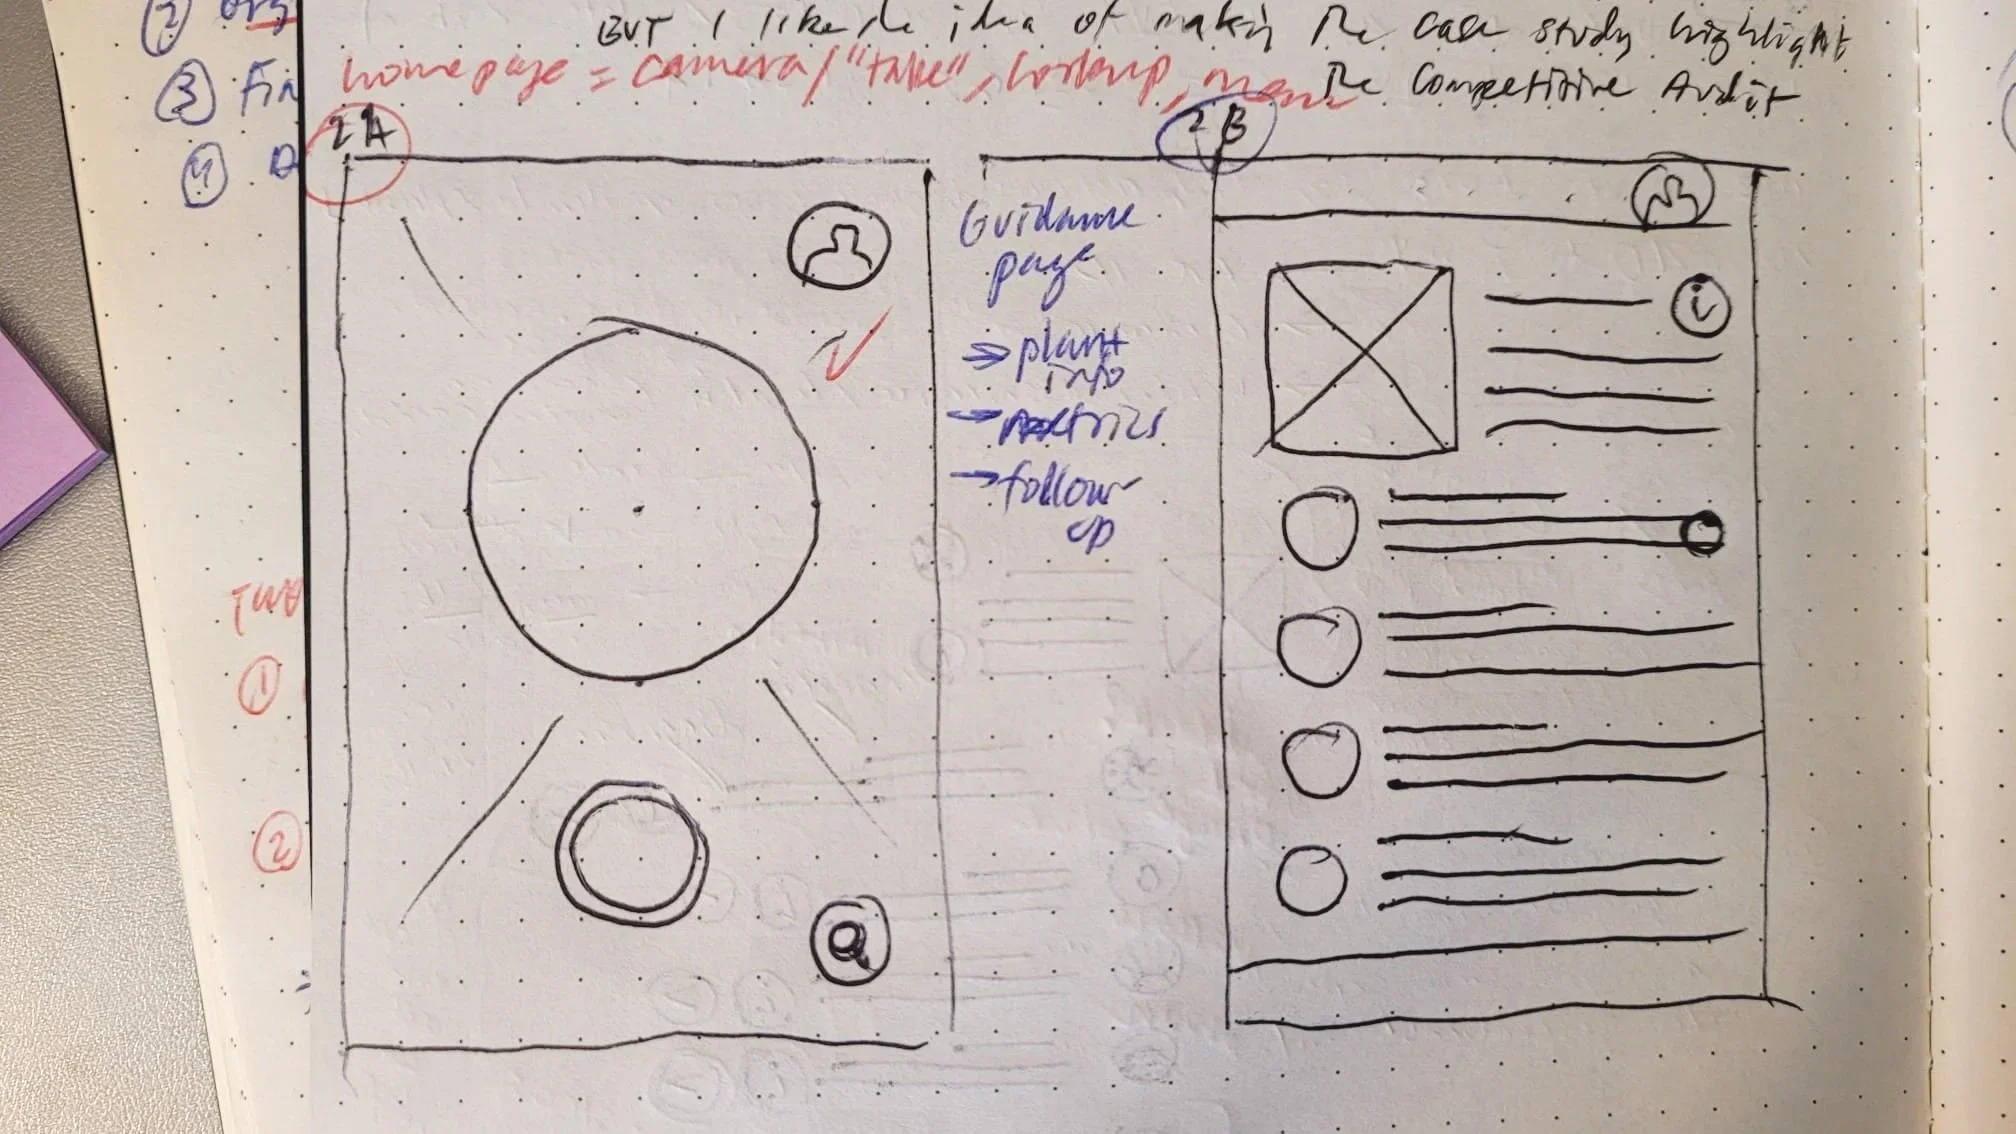 BUT I like the idea of making the case study highlight
the Competitive Audit
homepage = camera/"take", lookup, menu
2
3 Fin
4
2A
2B
Guidance
page
→ plant
info
→ metrics
→ follow
up
i
Two
1
2